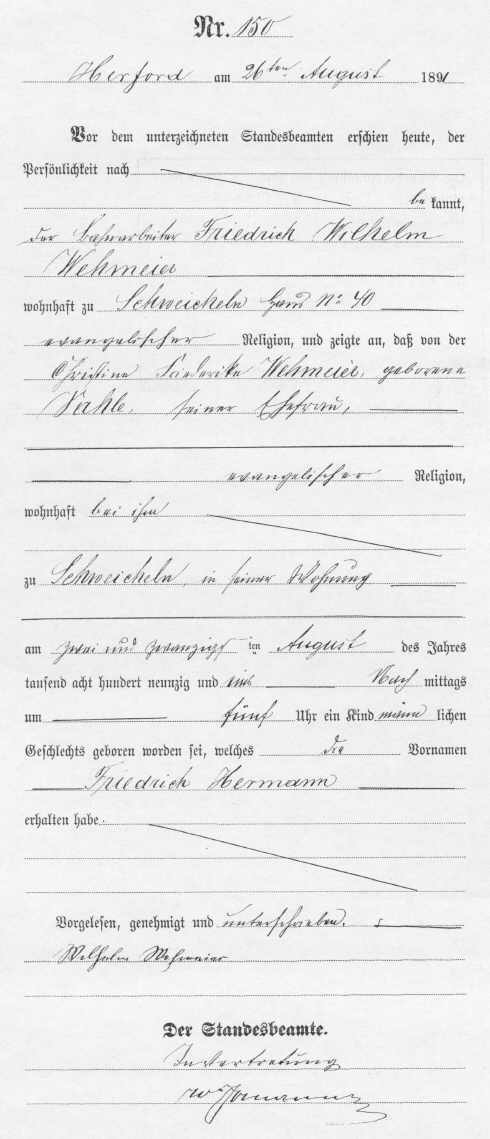 Nr. 150
Herford am 26ten August 1891
Vor dem unterzeichneten Standesbeamten erschien heute, der
Persönlichkeit nach
be kannt,
der Bahnarbeiter Friedrich Wilhelm
Wehmeier
wohnhaft zu Schweicheln Haus No 40
evangelischer Religion, und zeigte an, daß von der
Christine Friederike Wehmeier, geborene
Sahle, seiner Ehefrau,
evangelischer Religion,
wohnhaft bei ihm
zu Schweicheln, in seiner Wohnung
am zwei und zwanzigs ten August des Jahres
tausend acht hundert neunzig und eins Nach mittags
um fünf Uhr ein Kind männ lichen
Geschlechts geboren worden sei, welches die Vornamen
Friedrich Hermann
erhalten habe.
Vorgelesen, genehmigt und unterschrieben.
Wilhelm Wehmeier
Der Standesbeamte.
In Vertretung